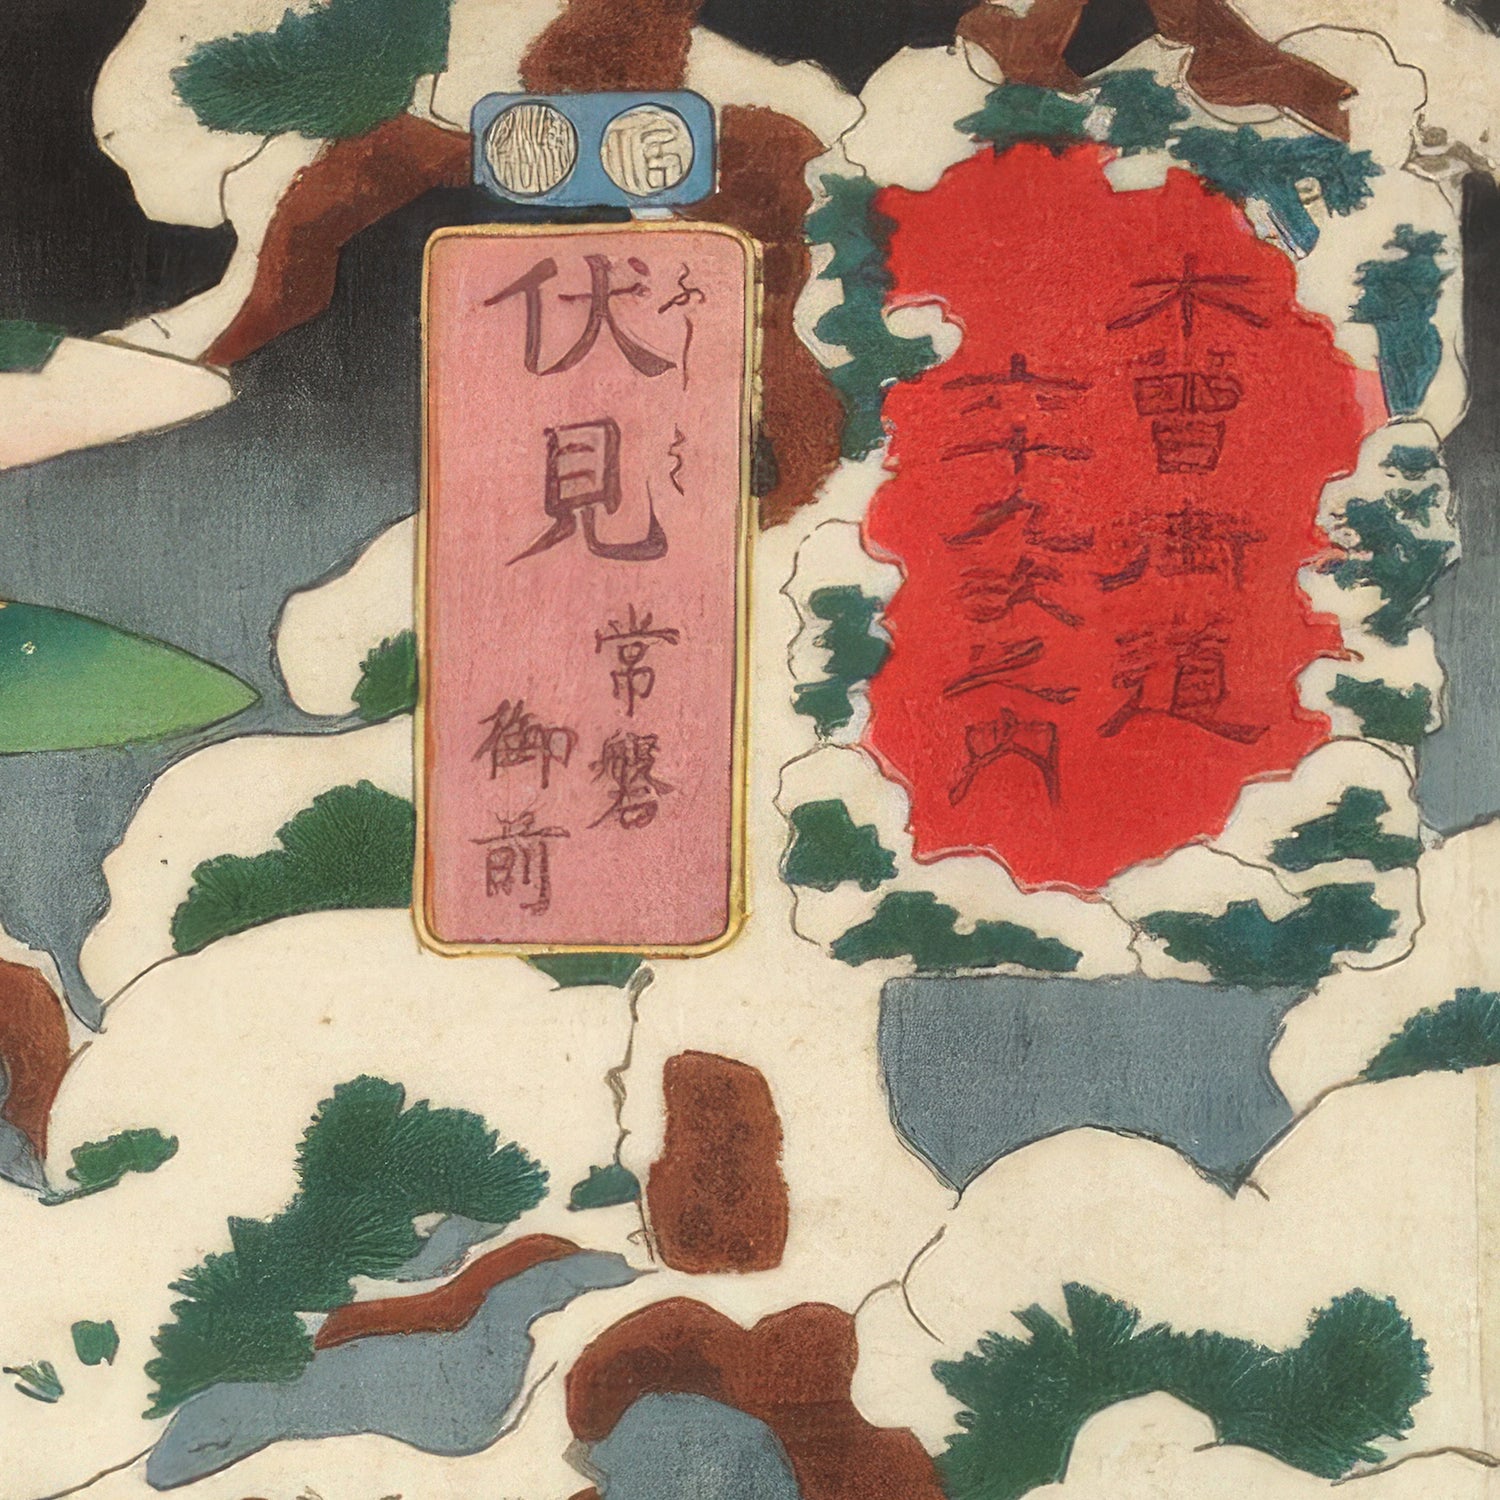 木曾街道
六十九次之内
ふしみ
伏見
常磐
御前